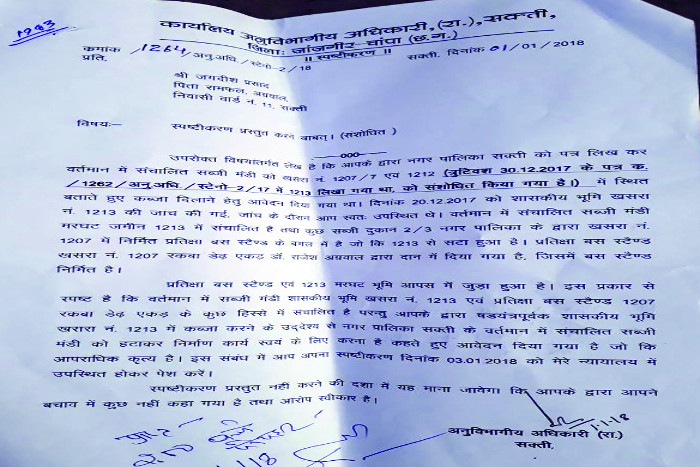 1983
कार्यालय अनुविभागीय अधिकारी,(रा.),सक्ती,
जिला: जांजगीर चांपा (छ.ग.)
॥ स्पष्टीकरण ॥
क्रमांक /1264/अनु.अधि./स्टेनो-2/18 सक्ती. दिनांक 01/01/2018
प्रति.
श्री जगदीश प्रसाद
पिता रामफल, अग्रवाल,
निवासी वार्ड नं. 11, सक्ती
विषयः– स्पष्टीकरण प्रस्तुत करने बाबत्। (संशोधित)
---000---
उपरोक्त विषयांतर्गत लेख है कि आपके द्वारा नगर पालिका सक्ती को पत्र लिख कर
वर्तमान में संचालित सब्जी मंडी को खसरा नं. 1207/7 एवं 1212 (त्रुटिवश 30.12.2017 के पत्र क.
/1262/अनु.अधि./स्टेनो-2/17 में 1213 लिखा गया था, को संशोधित किया गया है।) में स्थित
बताते हुए कब्जा दिलाने हेतु आवेदन दिया गया था। दिनांक 20.12.2017 को शासकीय भूमि खसरा
नं. 1213 की जांच की गई, जांच के दौरान आप स्वतः उपस्थित थे। वर्तमान में संचालित सब्जी मंडी
मरघट जमीन 1213 में संचालित है तथा कुछ सब्जी दुकान 2/3 नगर पालिका के द्वारा खसरा नं.
1207 में निर्मित प्रतिक्षा बस स्टैण्ड के बगल में है जो कि 1213 से सटा हुआ है। प्रतिक्षा बस स्टैण्ड
खसरा नं. 1207 रकबा डेढ़ एकड़ डॉ. राजेश अग्रवाल द्वारा दान में दिया गया है, जिसमें बस स्टैण्ड
निर्मित है।
प्रतिक्षा बस स्टैण्ड एवं 1213 मरघट भूमि आपस में जुड़ा हुआ है। इस प्रकार से
स्पष्ट है कि वर्तमान में सब्जी मंडी शासकीय भूमि खसरा नं. 1213 एवं प्रतिक्षा बस स्टैण्ड 1207
रकबा डेढ़ एकड़ के कुछ हिस्से में संचालित है परन्तु आपके द्वारा षडयंत्रपूर्वक शासकीय भूमि
खसरा नं. 1213 में कब्जा करने के उद्देश्य से नगर पालिका सक्ती के वर्तमान में संचालित सब्जी
मंडी को हटाकर निर्माण कार्य स्वयं के लिए करना है कहते हुए आवेदन दिया गया है जो कि
आपराधिक कृत्य है। इस संबंध में आप अपना स्पष्टीकरण दिनांक 03.01.2018 को मेरे न्यायालय में
उपस्थित होकर पेश करें।
स्पष्टीकरण प्रस्तुत नहीं करने की दशा में यह माना जावेगा कि आपके द्वारा आपने
बचाव में कुछ नहीं कहा गया है तथा आरोप स्वीकार है।
1.1.18
अनुविभागीय अधिकारी (रा.)
सक्ती.